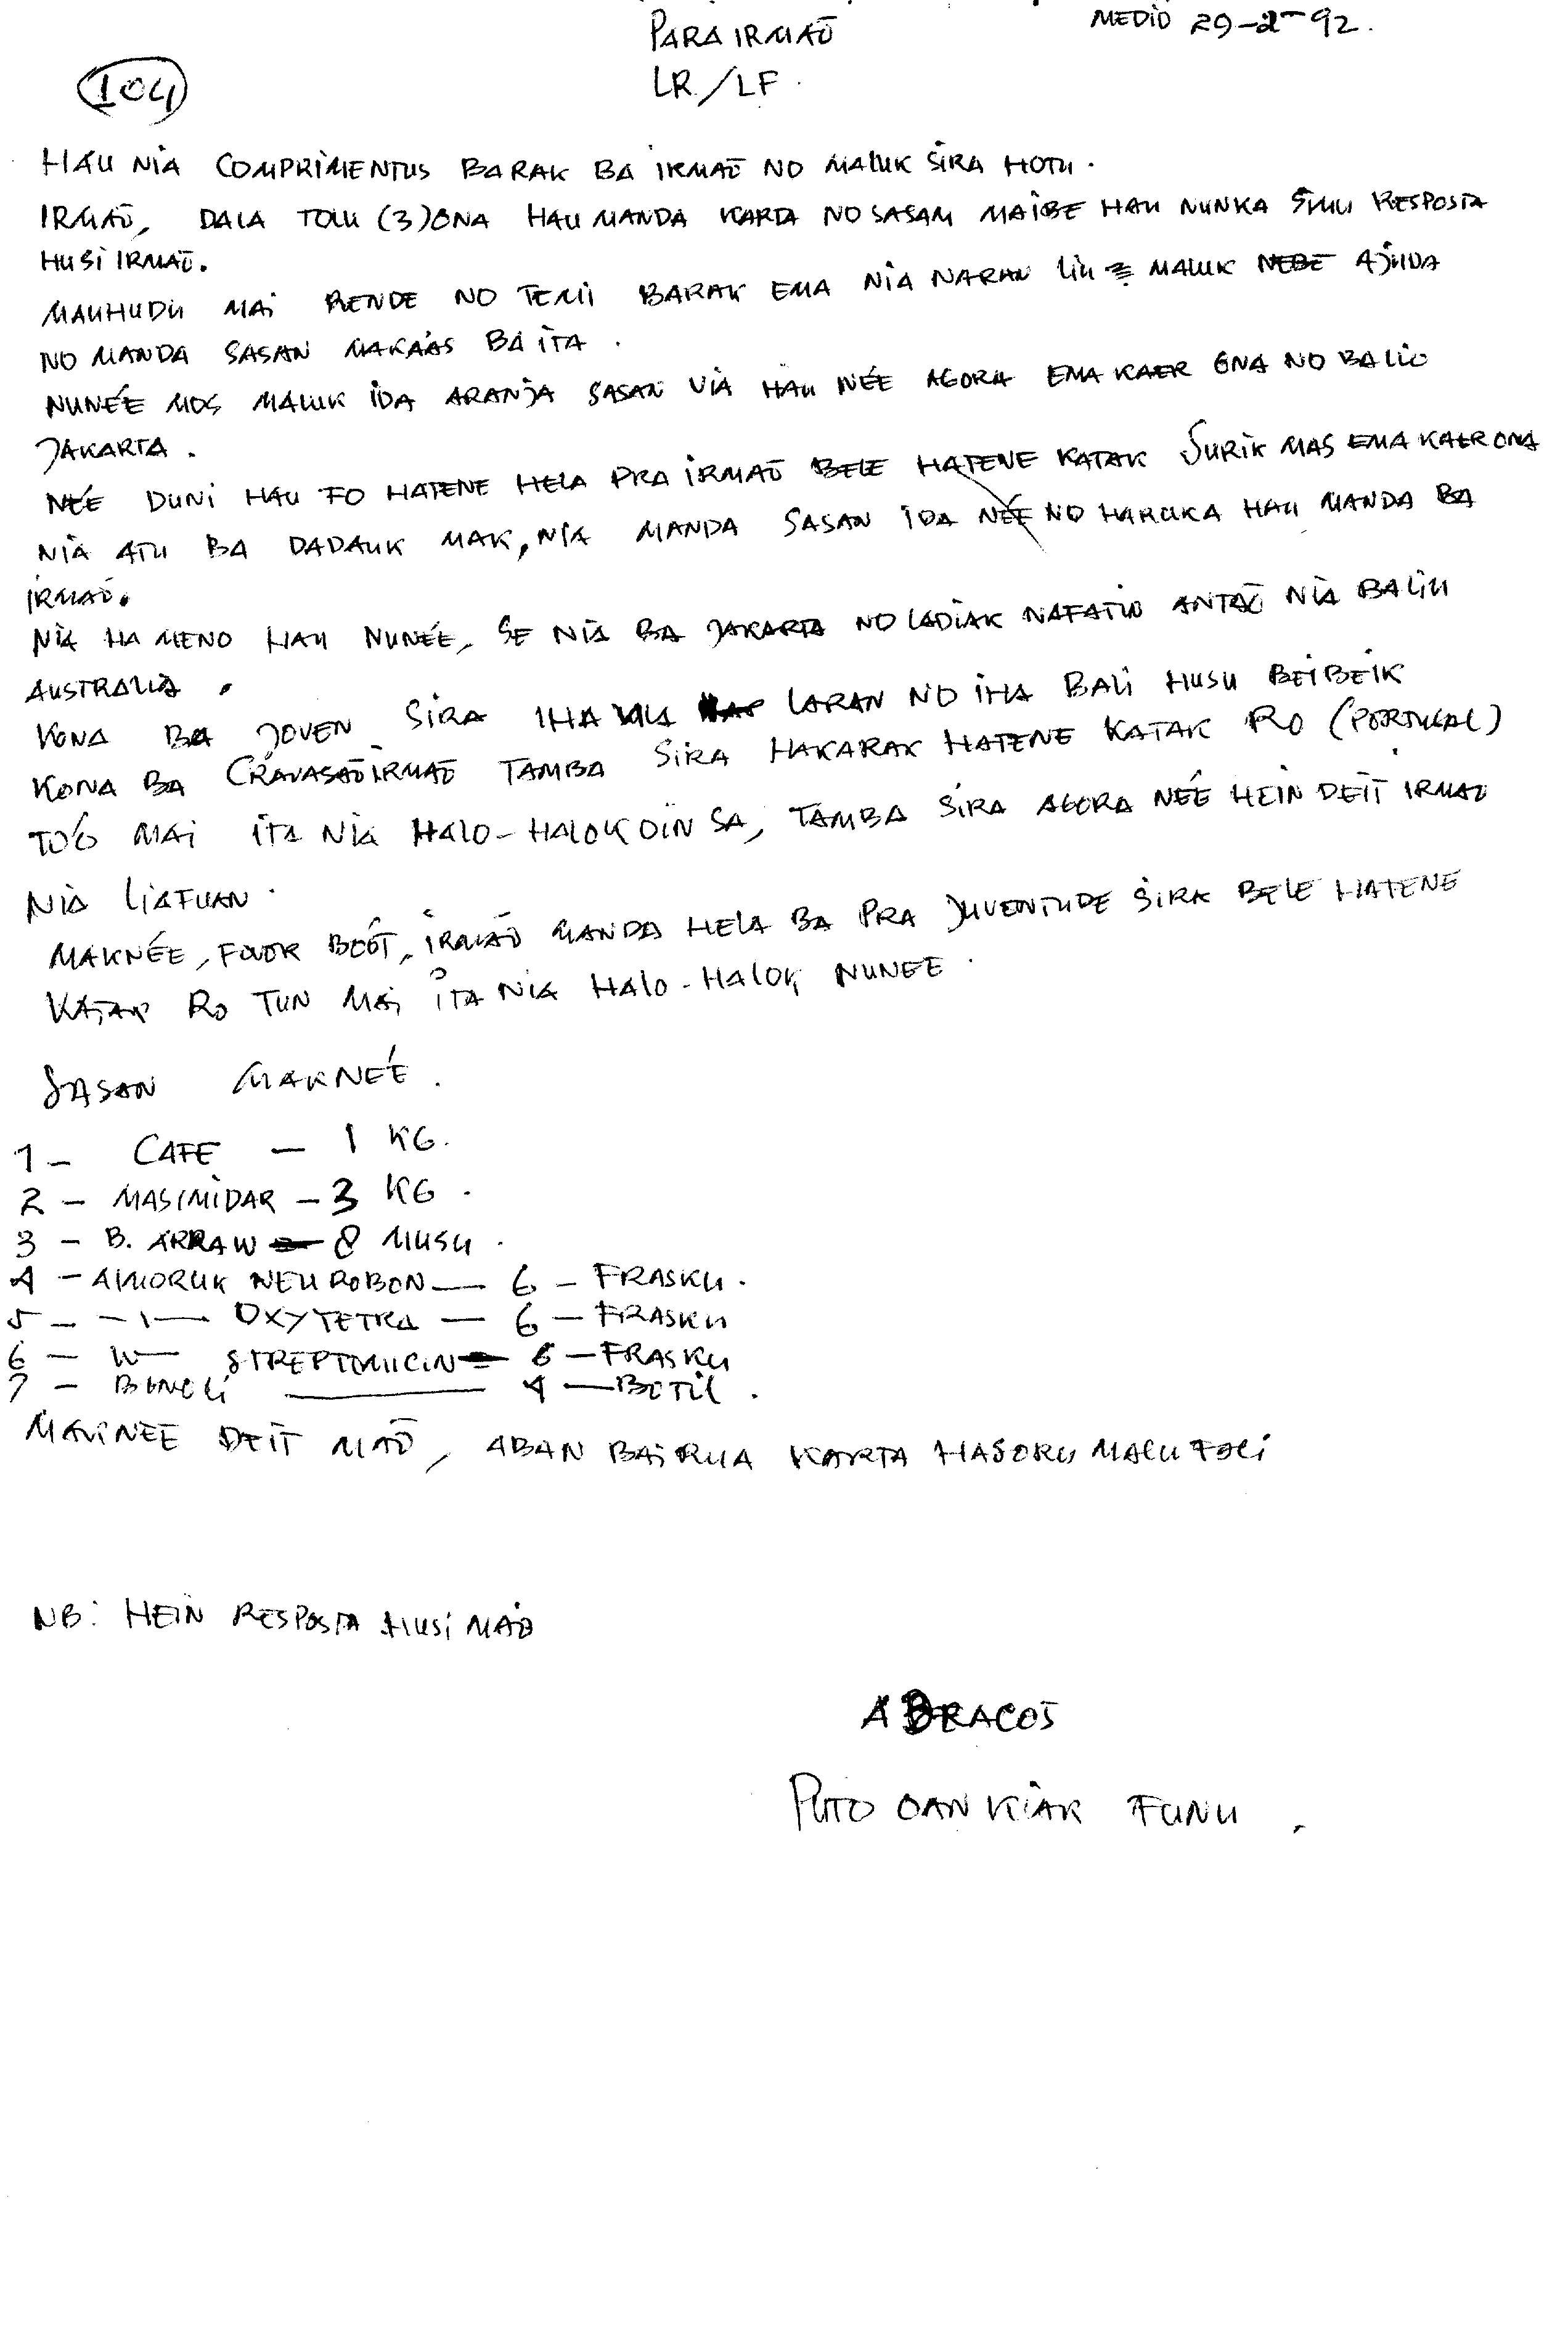 PARA IRMAÕ
MEDIO 29-2-92.
LR/LF.
104
HAU NIA COMPRIMENTUS BARAK BA IRMAÕ NO MALUK SIRA HOTU.
IRMAÕ, DALA TOLU (3) ONA HAU MANDA KARTA NO SASAM MAIBE HAU NUNKA SIMU RESPOSTA
HUSI IRMAÕ.
MAUHUDU MAI RENDE NO TEMI BARAK EMA NIA NARAN LIU MALUK NEBE AJUDA
NO MANDA SASAN MAKAÁS BA ITA.
NUNÉE MOS MALUK IDA ARANJA SASAN VIA HAU NÉE AGORA EMA KAER ONA NO BA LIO
JAKARTA.
NÉE DUNI HAU FO HATENE HELA PRA IRMAÕ BELE HATENE KATAK SURIK MAS EMA KAER ONA
NIA ATU BA DADAUK MAK, NIA MANDA SASAN IDA NÉE NO HARUKA HAU MANDA BA
IRMAÕ.
NIA HAMENO HAU NUNÉE, SE NIA BA JAKARTA NO LADIAK NAFATIN ANTAÕ NIA BA LIU
AUSTRALIA.
KONA BA JOVEN SIRA IHA VILA LARAN NO IHA BALI HUSU BEIBEIK
KONA BA IRMAÕ TAMBA SIRA HAKARAK HATENE KATAK RO (PORTUGAL)
TO'O MAI ITA NIA HALO-HALOK OIN SA, TAMBA SIRA AGORA NÉE HEIN DEIT IRMAÕ
NIA LIAFUAN.
MAKNÉE, FAVOR BOÓT, IRMAÕ MANDA HELA BA PRA JUVENTUDE SIRA BELE HATENE
KATAK RO TUN MAI ITA NIA HALO-HALOK NUNEE.
SASAN MAKNEÉ.
1- CAFE - 1 KG.
2 - MASIMIDAR - 3 KG.
3 - B. ARRAW - 8 MUSU.
4 - AIMORUK NEUROBON - 6 - FRASKU.
5 - -ı- OXYTETRA - 6 - FRASKU
6 - STREPTOMICIN - 6 - FRASKU
7 - BENOLI - 4 - BOTIL.
MAKNEE DEIT MAÕ, ABAN BAIRUA KARTA HASORU MALU FALI
NB: HEIN RESPOSTA HUSI MAÕ
ABRACOS
PUTO OAN KIAK FUNU.